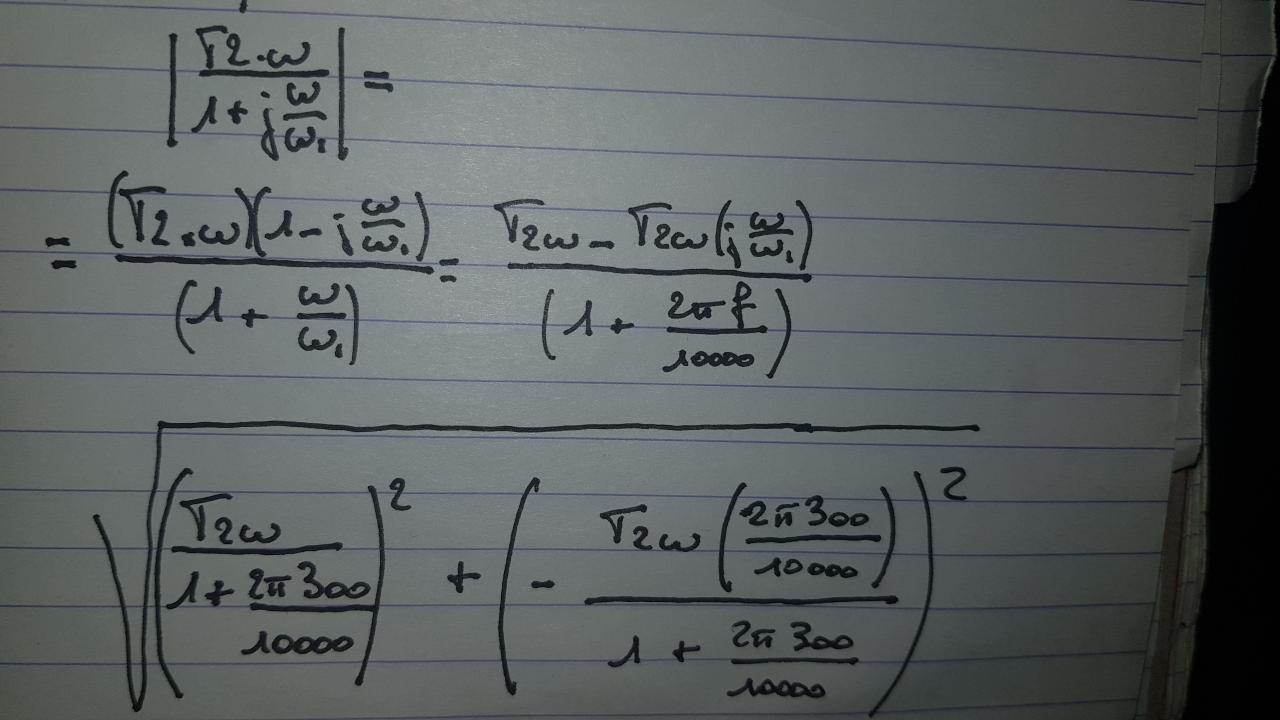 |(√2·ω)/(1 + j ω/ω₁)| =
= ((√2·ω)(1 - j ω/ω₁))/((1 + ω/ω₁)) = (√2ω - √2ω(j ω/ω₁))/((1 + 2πf/10000))
√(((√2ω)/(1 + 2π300/10000))² + (-(√2ω(2π300/10000))/(1 + 2π300/10000))²)